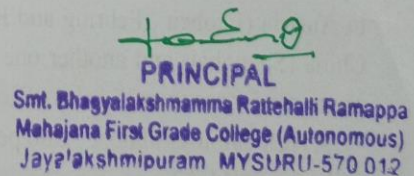 PRINCIPAL
Smt. Bhagyalakshmamma Rattehalli Ramappa
Mahajana First Grade College (Autonomous)
Jayalakshmipuram MYSURU-570 012